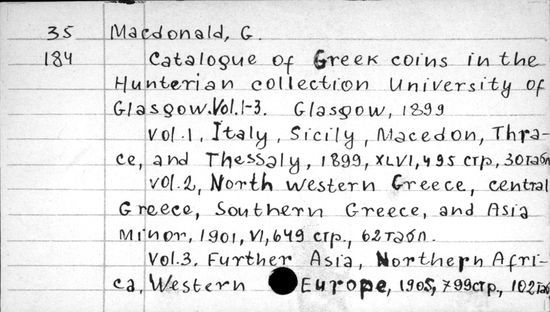 35 Macdonald, G.
184 Catalogue of Greek coins in the
Hunterian collection University of
Glasgow. Vol. 1-3. Glasgow, 1899
Vol. 1, Italy, Sicily, Macedon, Thra-
ce, and Thessaly, 1899, XLVI, 495 стр, 30 табл
Vol. 2, North Western Greece, central
Greece, Southern Greece, and Asia
Minor, 1901, VI, 649 стр., 62 табл.
Vol. 3. Further Asia, Northern Afri-
ca, Western Europe, 1905, 799 стр, 102 таб